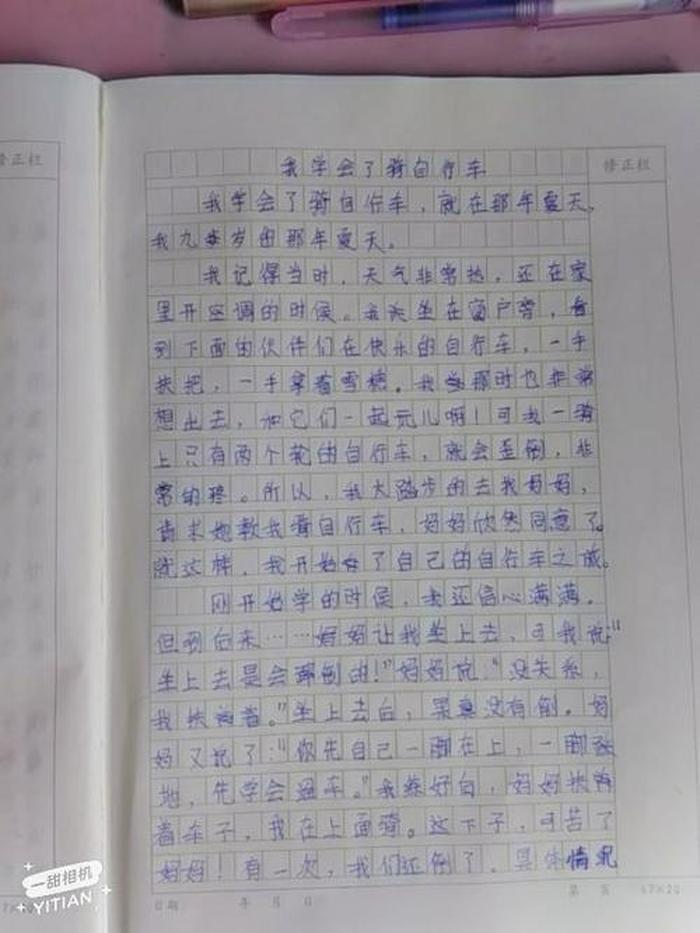 修正栏
修正栏
我学会了骑自行车
我学会了骑自行车，就在那年夏天，
我九岁的那年夏天。
我记得当时，天气非常热，还在家
里开空调的时候。我坐在窗户旁，看
到下面的伙伴们在快乐的自行车，一手
扶把，一手拿着雪糕。我当那时也非常
想出去，和它们一起玩儿啊！可我一骑
上只有两个轮的自行车，就会歪倒，非
常的疼。所以，我大踏步的去找妈妈，
请求她教我骑自行车，妈妈欣然同意了。
就这样，我开始了自己的自行车之旅。
刚开始学的时候，我还信心满满，
但到后来……妈妈让我坐上去，可我说"
坐上去是会摔倒的！"妈妈说："没关系，
我扶着。"坐上去后，果真没有倒。妈
妈又说了："你先自己一脚在上，一脚
地，先学会遛车。"我练好后，妈妈扶
着车子，我在上面骑。这下子，可苦了
妈妈！有一次，我们还倒了。具体情况
日期： 年 月 日
第 页
17×20
一甜相机
YITIAN